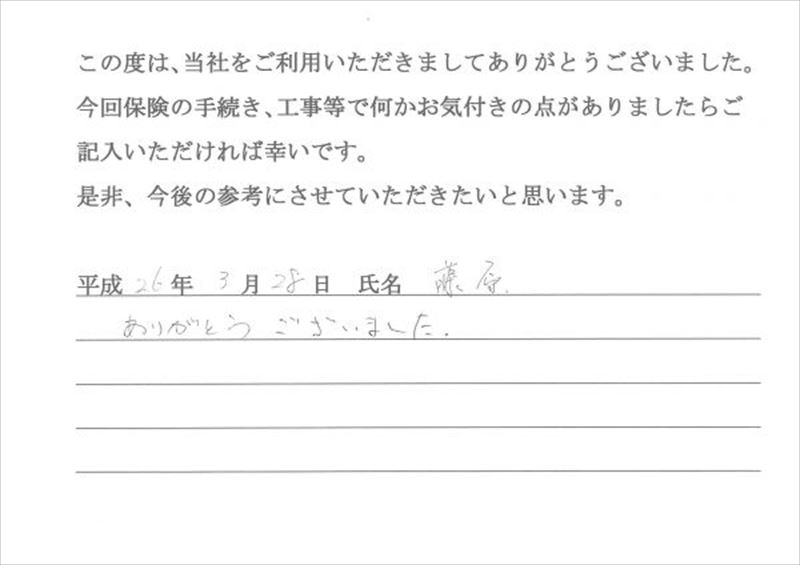 この度は、当社をご利用いただきましてありがとうございました。
今回保険の手続き、工事等で何かお気付きの点がありましたらご
記入いただければ幸いです。
是非、今後の参考にさせていただきたいと思います。
平成 26 年 3 月 28 日 氏名 藤原.
ありがとう ございました.